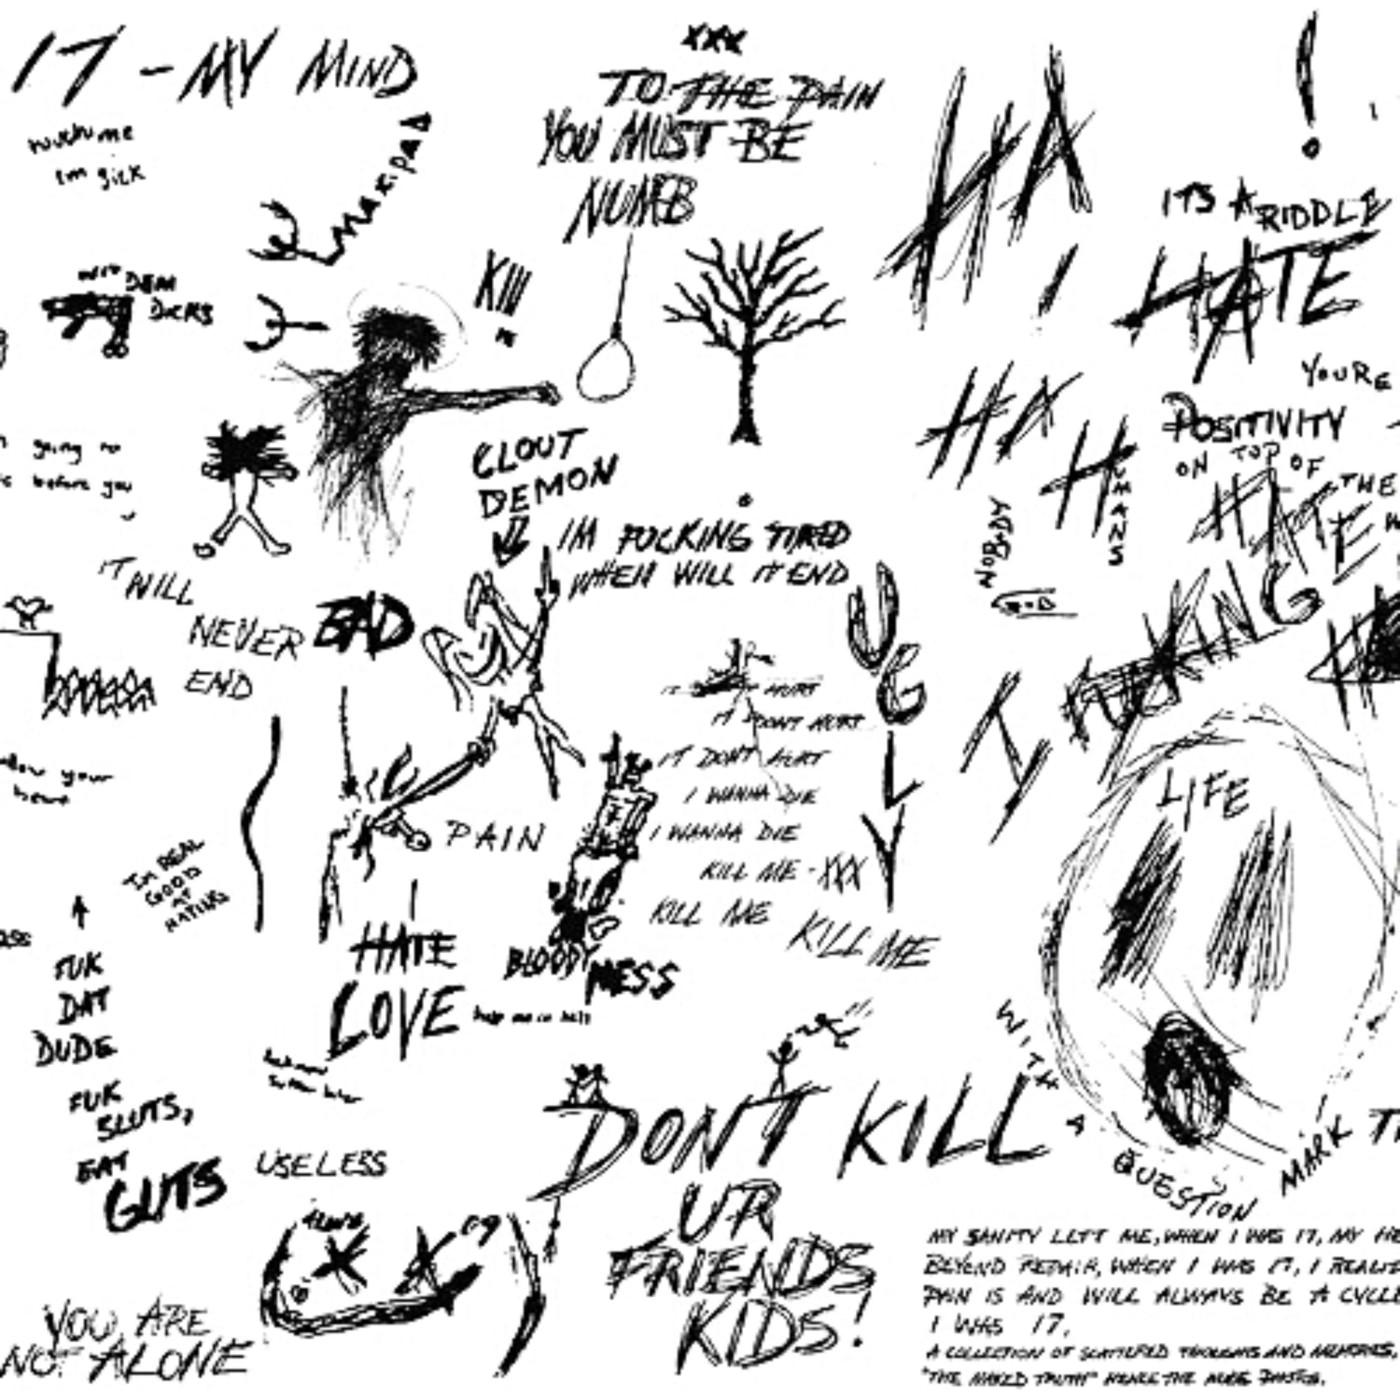 17 - MY MIND
XXX
TO THE PAIN
YOU MUST BE
NUMB
HA
HA
!
ITS A RIDDLE
HATE
im sick
KIll
DEM
DICKS
YOURE
POSITIVITY
ON TOP OF
HATE
THE
HUMANS
NOBODY
CLOUT
DEMON
IM FUCKING TIRED
WHEN WILL IT END
going
before you
IT WILL
NEVER
END
BAD
UGLY
IT DONT HURT
IT DONT HURT
I WANNA DIE
I WANNA DIE
KILL ME - XXX
KILL ME
KILL ME
I FUCKING
LIFE
your
PAIN
IM REAL
GOOD
AT
HATING
HATE
LOVE
BLOODY MESS
FUK
DAT
DUDE
FUK
SLUTS,
EAT
GUTS
USELESS
DONT KILL
UR
FRIENDS
KIDS!
WITH A QUESTION MARK
YOU ARE
NOT ALONE
MY SANITY LEFT ME, WHEN I WAS 17, MY
BEYOND REPAIR, WHEN I WAS 17, I
PAIN IS AND WILL ALWAYS BE A
I WAS 17.
A COLLECTION OF SCATTERED THOUGHTS AND MEMORIES,
"THE NAKED TRUTH" HENCE THE NUDE